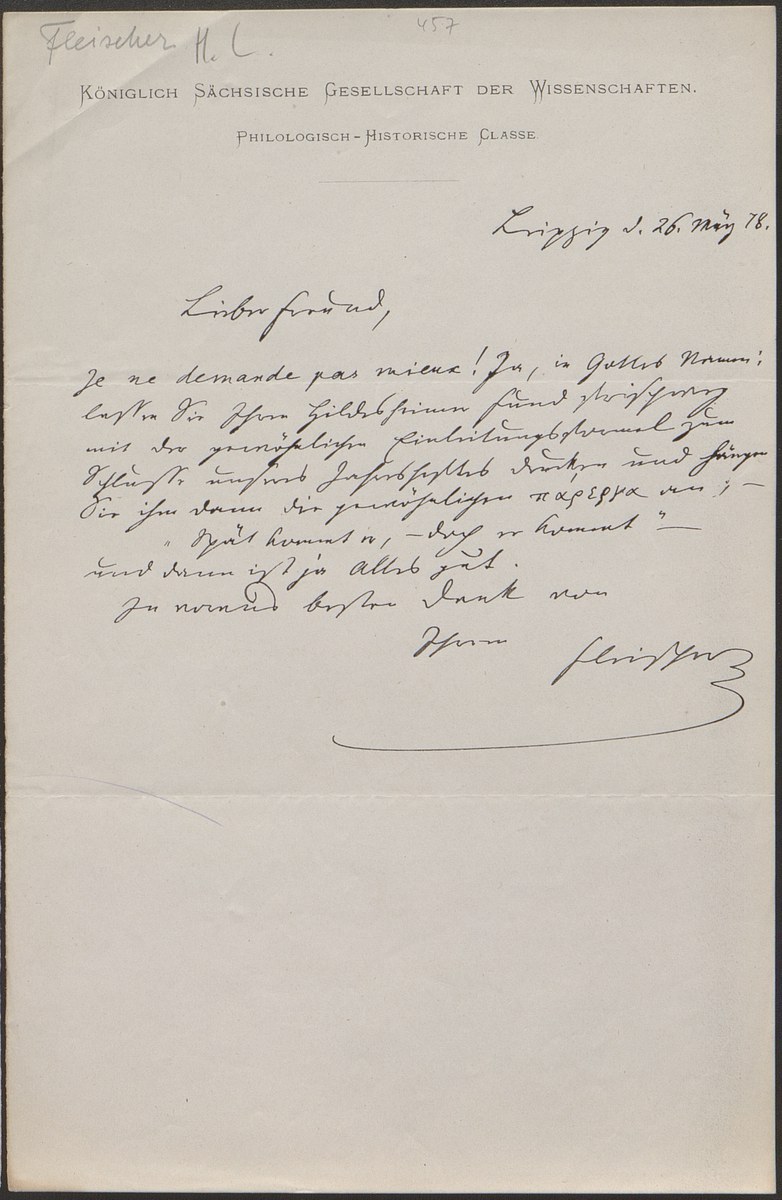 Fleischer H. L.
457
KÖNIGLICH SÄCHSISCHE GESELLSCHAFT DER WISSENSCHAFTEN.
PHILOLOGISCH-HISTORISCHE CLASSE.
Leipzig d. 26. März 78.
Lieber Freund,
Je ne demande pas mieux! Ja, in Gottes Namen:
lassen Sie Ihren Hildesheimer Fund frischweg
mit der gewöhnlichen Einleitungsformel zum
Schlusse unseres Jahresheftes drucken und hängen
Sie ihm dann die gewöhnlichen πάρεργα an; –
"Spät kommt er, – doch er kommt" –
und dann ist ja Alles gut.
Im voraus besten Dank von
Ihrem Fleischer